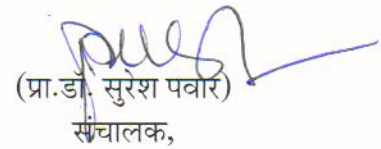 (प्रा.डॉ. सुरेश पवार)
संचालक,